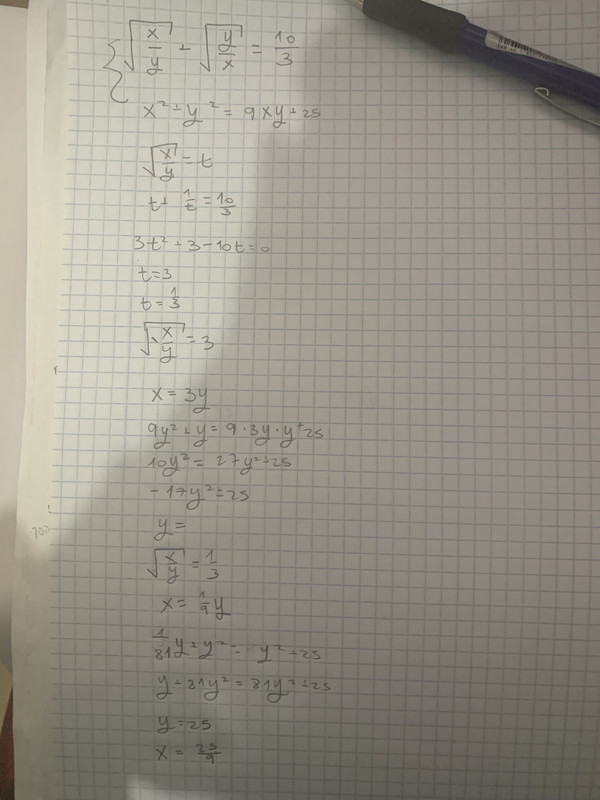 √(x/y) + √(y/x) = 10/3
x² + y² = 9xy + 25
√(x/y) = t
t + 1/t = 10/3
3t² + 3 - 10t = 0
t = 3
t = 1/3
√(x/y) = 3
x = 3y
9y² + y = 9 · 3y · y + 25
10y² = 27y² + 25
-17y² = 25
y =
√(x/y) = 1/3
x = 1/9 y
1/81 y + y² = y² + 25
y + 81y² = 81y² + 25
y = 25
x = 25/9